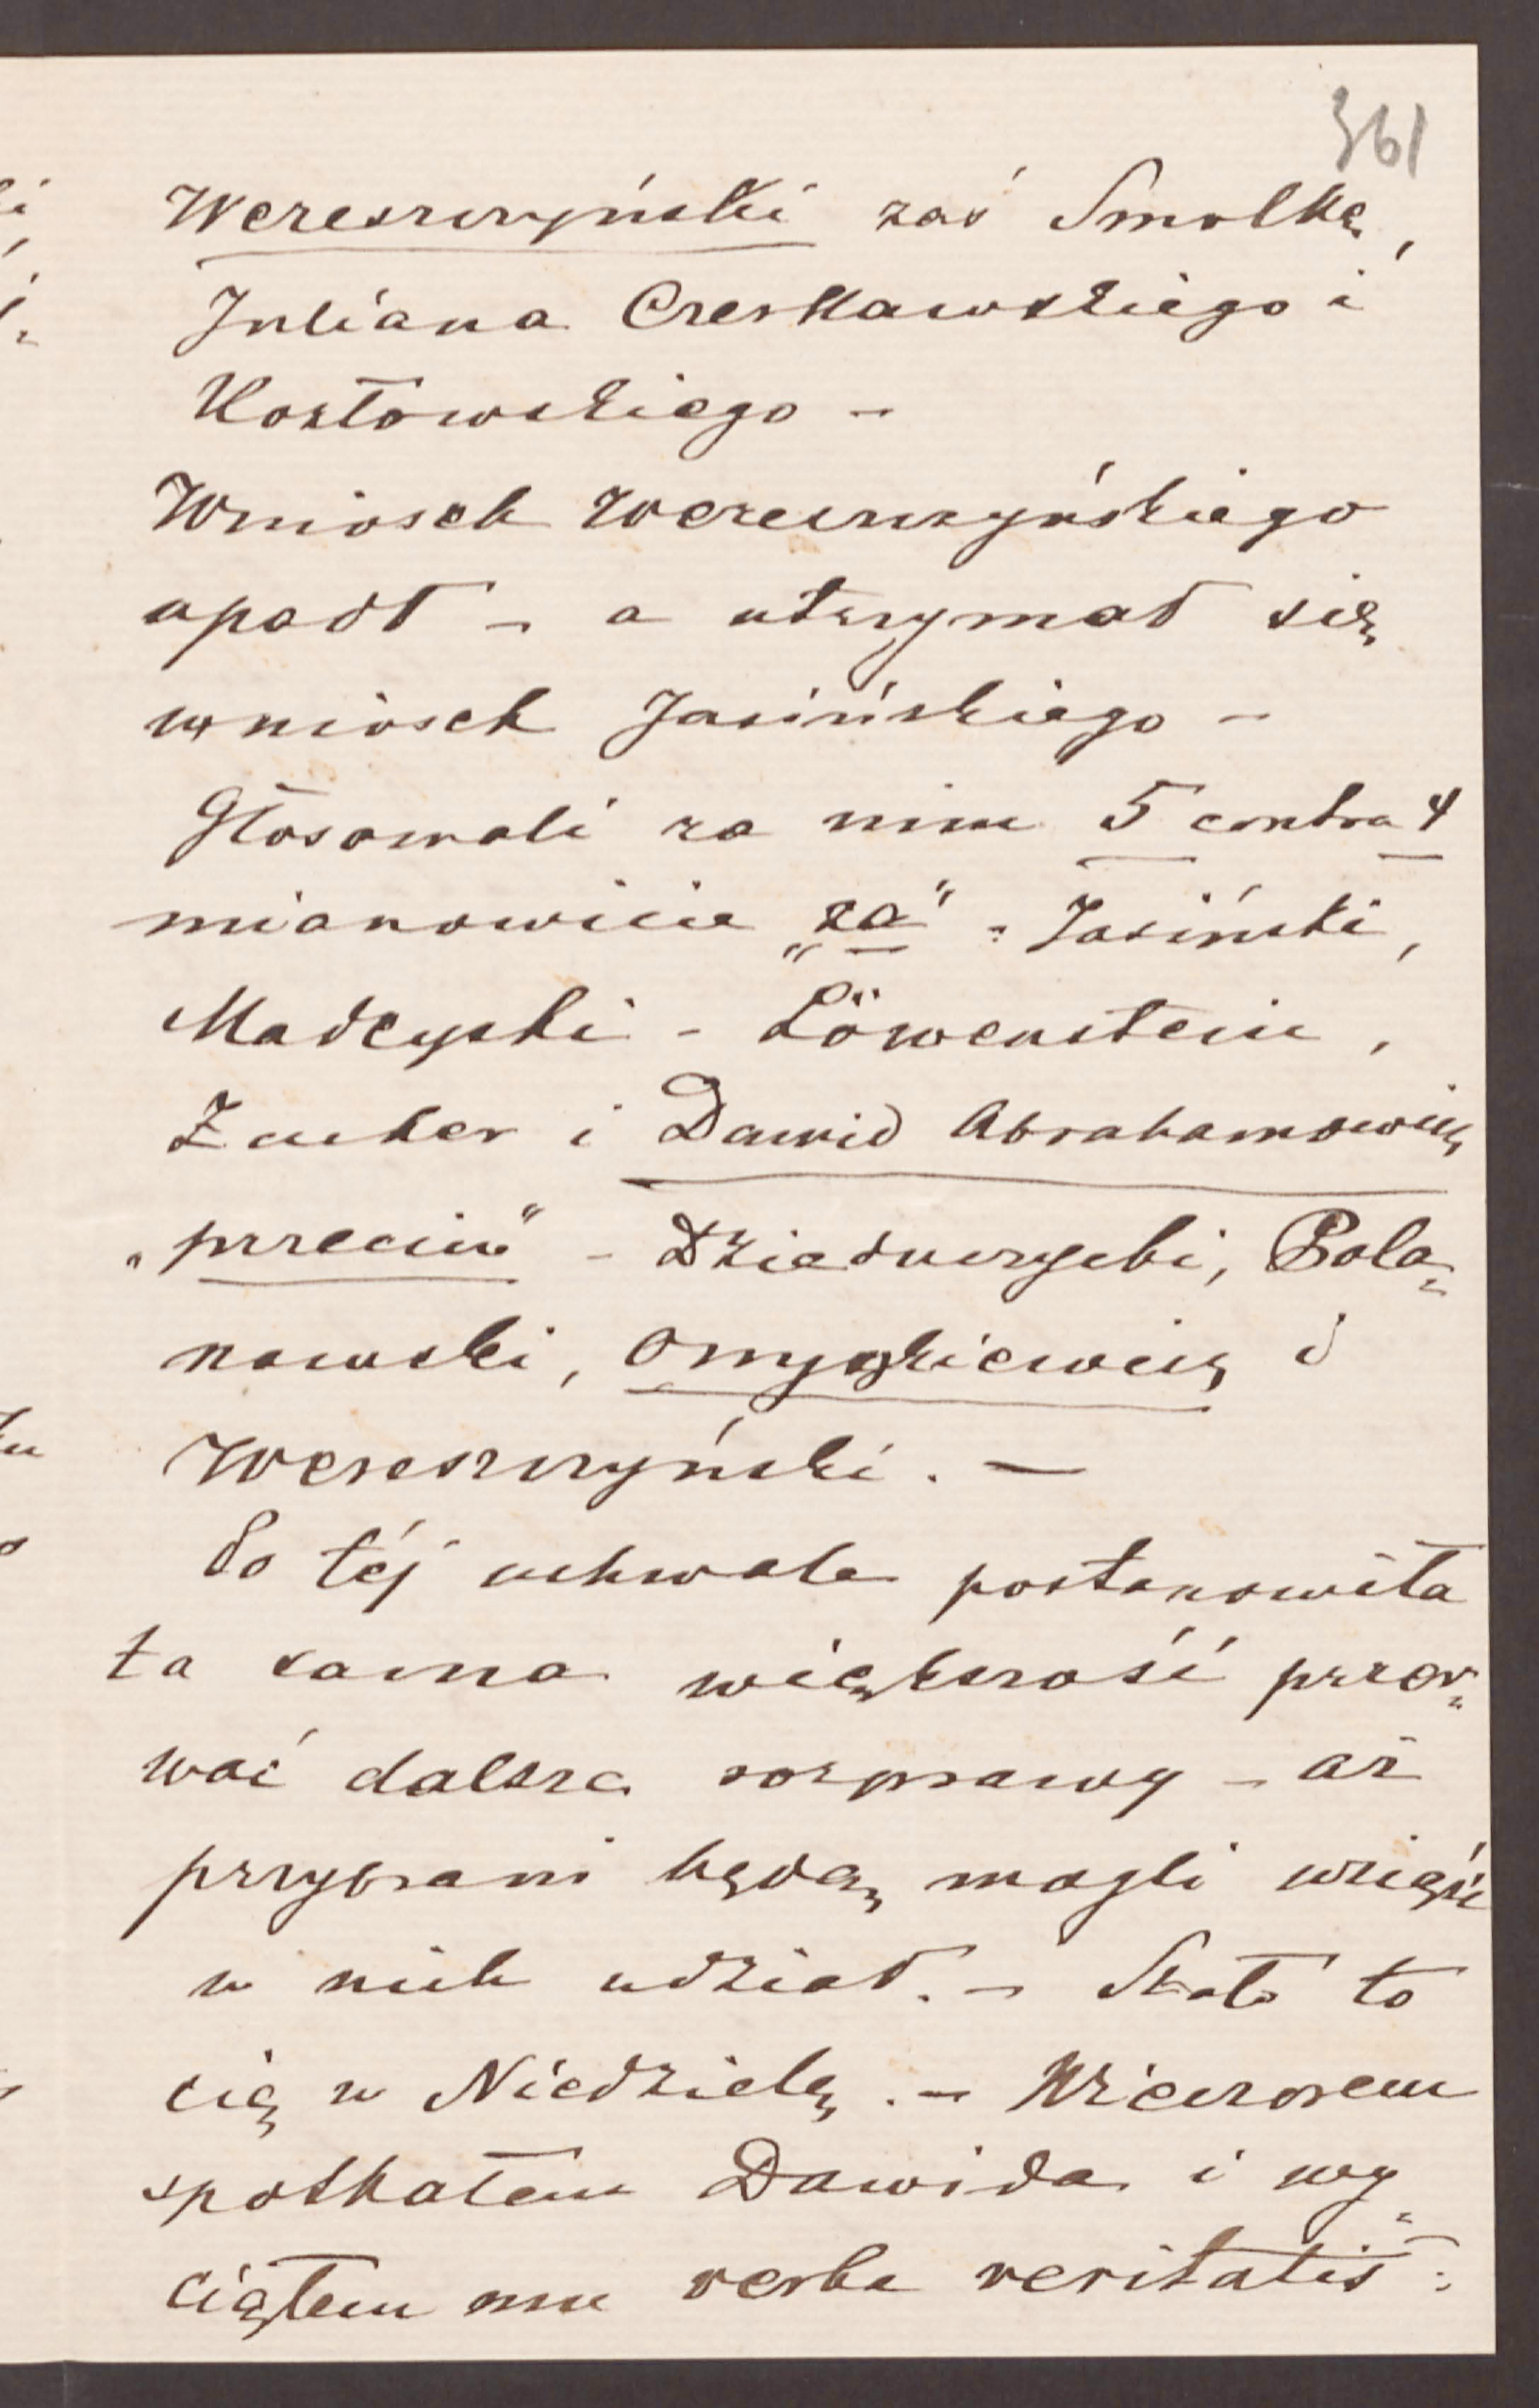 361
Wereszczyński zaś Smolkę,
Juliana Czerkawskiego i
Kozłowskiego –
Wniosek Wereszczyńskiego
upadł – a utrzymał się
wniosek Jasińskiego –
Głosowali za nim 5 contra 4
mianowicie „za" = Jasiński,
Madeyski – Löwenstein,
Zucker i Dawid Abrahamowicz
„przeciw" – Dzieduszycki, Pola=
nowski, Onyszkiewicz i
Wereszczyński. –
Po téj uchwale postanowiła
ta sama większość przer=
wać dalsze rozprawy – aż
przybrani będą mogli wziąść
w nich udział. – Stało to
się w Niedzielę. – Wieczorem
spotkałem Dawida i wy=
ciąłem mu verba veritatis: